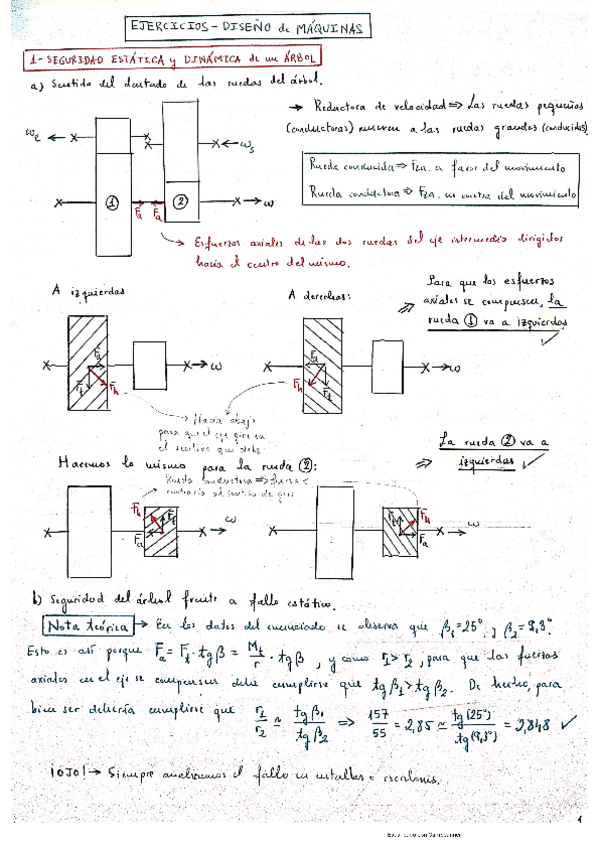 EJERCICIOS - DISEÑO de MÁQUINAS
1- SEGURIDAD ESTÁTICA y DINÁMICA de un ÁRBOL
a) Sentido del dentado de las ruedas del árbol.
→ Reductora de velocidad ⇒ Las ruedas pequeñas
(conductoras) mueven a las ruedas grandes (conducidas)
ωe
ωs
Rueda conducida ⇒ Fza. a favor del movimiento
Rueda conductora ⇒ Fza. en contra del movimiento
① Fa Fa ② ω
→ Esfuerzos axiales de las dos ruedas del eje intermedio dirigidos
hacia el centro del mismo.
A izquierdas
A derechas:
Para que los esfuerzos
axiales se compensen, la
rueda ① va a izquierdas ✓
Fa Ft Fh ω
Fa Fh Ft ω
→ Hacia abajo
para que el eje gire en
el sentido que debe
La rueda ② va a
izquierdas ✓
Hacemos lo mismo para la rueda ②:
Rueda conductora ⇒ fuerza
contraria al sentido de giro
Fh Ft Fa ω
Ft Fh Fa ω
b) Seguridad del árbol frente a fallo estático.
Nota teórica → En los datos del enunciado se observa que β1=25° y β2=9,3°.
Esto es así porque Fa = Ft · tgβ = Mt/r · tgβ, y como r1 > r2, para que las fuerzas
axiales en el eje se compensen debe cumplirse que tgβ1 > tgβ2. De hecho, para
bien ser debería cumplirse que r1/r2 ≃ tgβ1/tgβ2 ⇒ 157/55 = 2,85 ≃ tg(25°)/tg(9,3°) = 2,848 ✓
¡OJO! → Siempre analizamos el fallo en entalles o escalones.
1